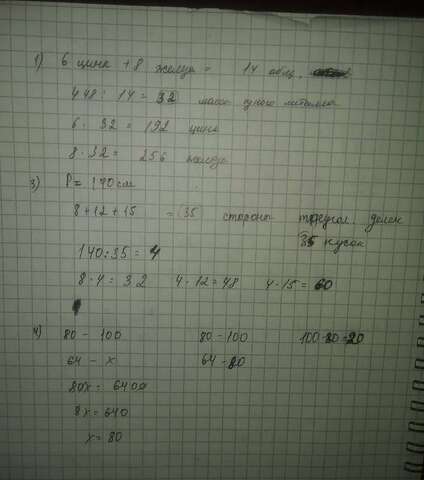 1) 6 цинк + 8 железа = 14 общ.
448 : 14 = 32 масса одного
6 · 32 = 192 цинк
8 · 32 = 256 железо
3) P = 140 см
8 + 12 + 15 = 35 стороны треугол. делен
35 кусок
140 : 35 = 4
8 · 4 = 32 4 · 12 = 48 4 · 15 = 60
4) 80 - 100 80 - 100 100 - 80 = 20
64 - x 64 - 80
80x = 6400
8x = 640
x = 80